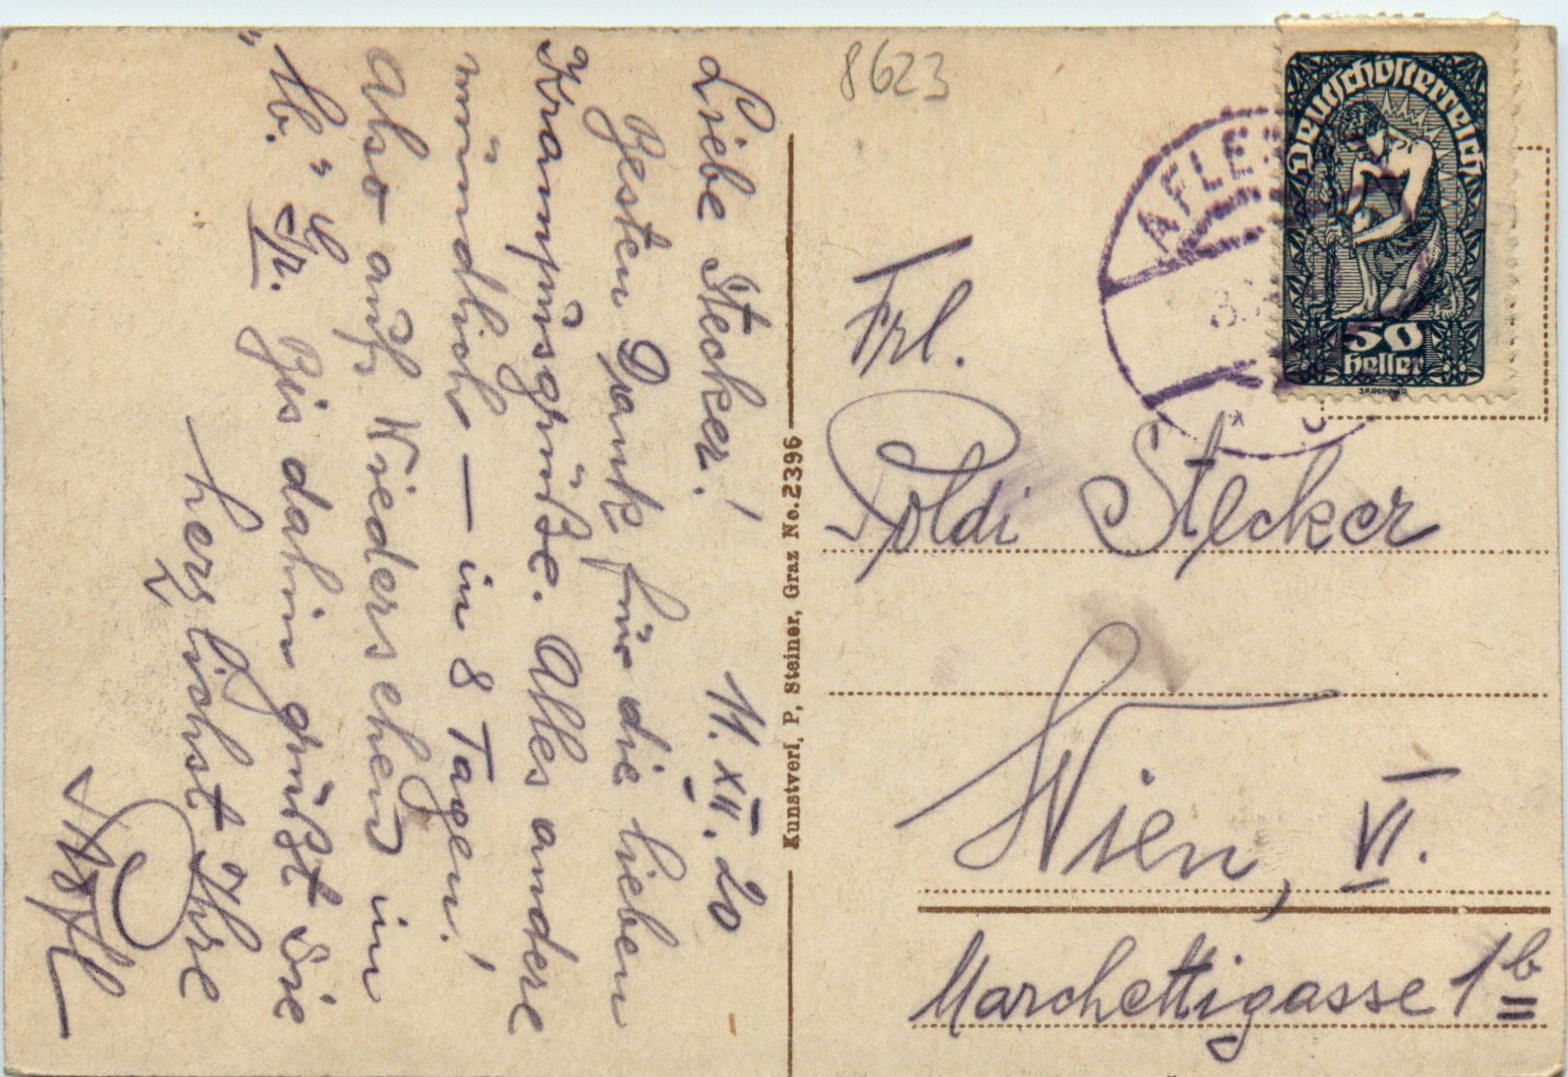 Liebe Stecker! 11. XII. 20
Besten Dank für die lieben
Krampusgrüße. Alles andere
mündlich — in 8 Tagen!
Also auf Wiedersehen in
"16." Gr. Bis dahin grüßt Sie
herzlichst Ihre
Kunstverl. P. Steiner, Graz No. 2396
8623
AFLE
Deutschösterreich
50
Heller
Frl.
Poldi Stecker
Wien, VI.
Marchettigasse 1b